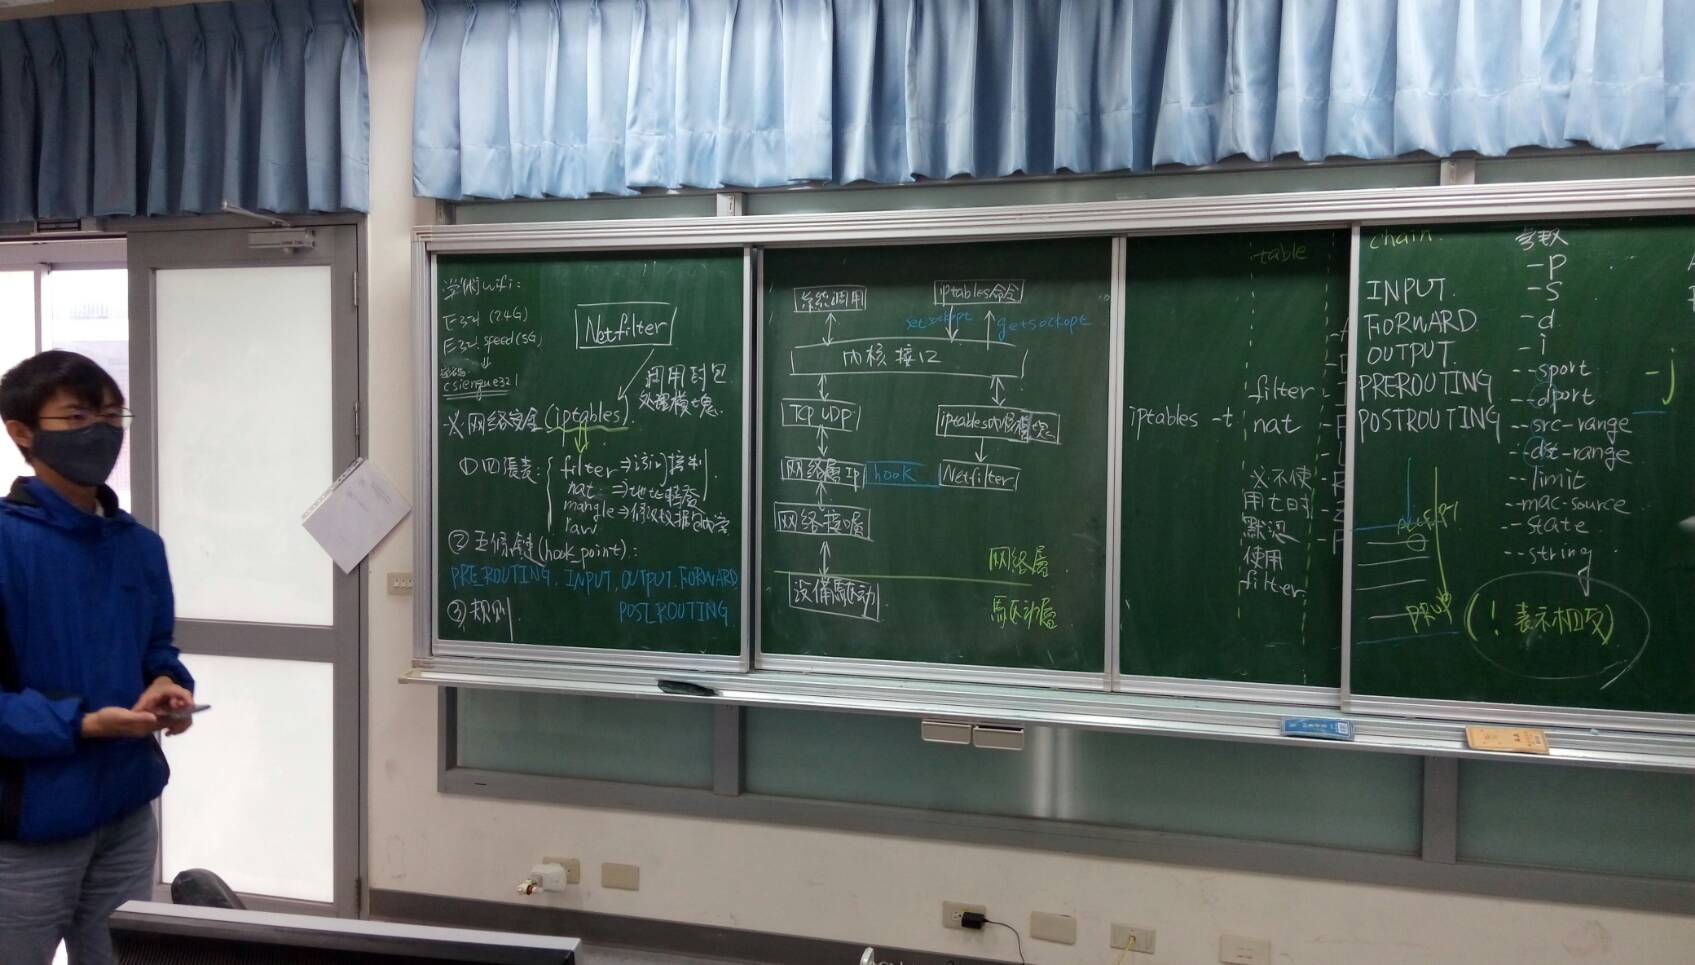 学術wifi:
E324 (2.4G)
E32 speed(5G)
密码
csiengue321
Netfilter
調用封包
处理模塊
网络安全(iptables)
①四張表:
filter⇒
nat ⇒地址轉換
mangle⇒修改数据包内容
raw
②五條鏈(hook point):
PREROUTING. INPUT. OUTPUT. FORWARD
POSTROUTING
③規則
系統調用
iptables命令
setsockopt
getsockopt
内核接口
TCP UDP
iptables内核模塊
网络層IP
hook
Netfilter
网络接口層
网络層
設備驅动
驅动層
table
iptables -t
filter
nat
不使
用t时
默認
使用
filter.
chain.
INPUT.
FORWARD
OUTPUT.
PREROUTING
POSTROUTING
参数
-p
-s
-d
-i
--sport
--dport
--src-range
--dst-range
--limit
--mac-source
--state
--string
-j
ACCEPT
DROP
(! 表示相反)